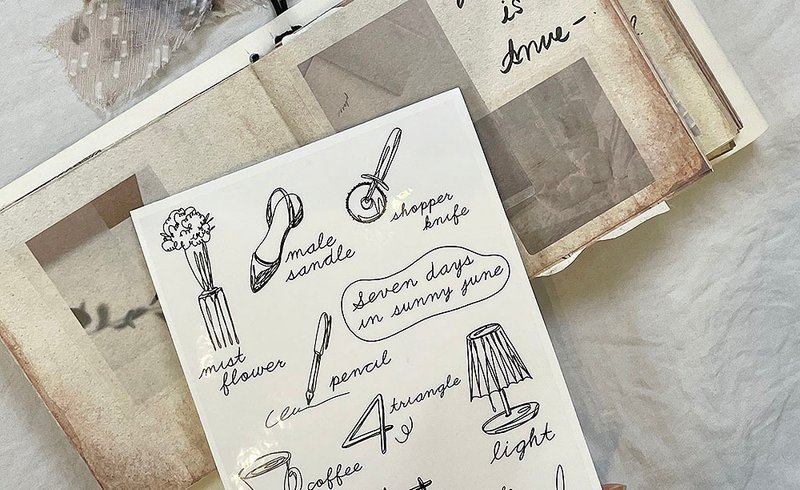 is
shopper
knife
male
sandle
Seven days
in sunny june
mist
flower
pencil
triangle
light
coffee